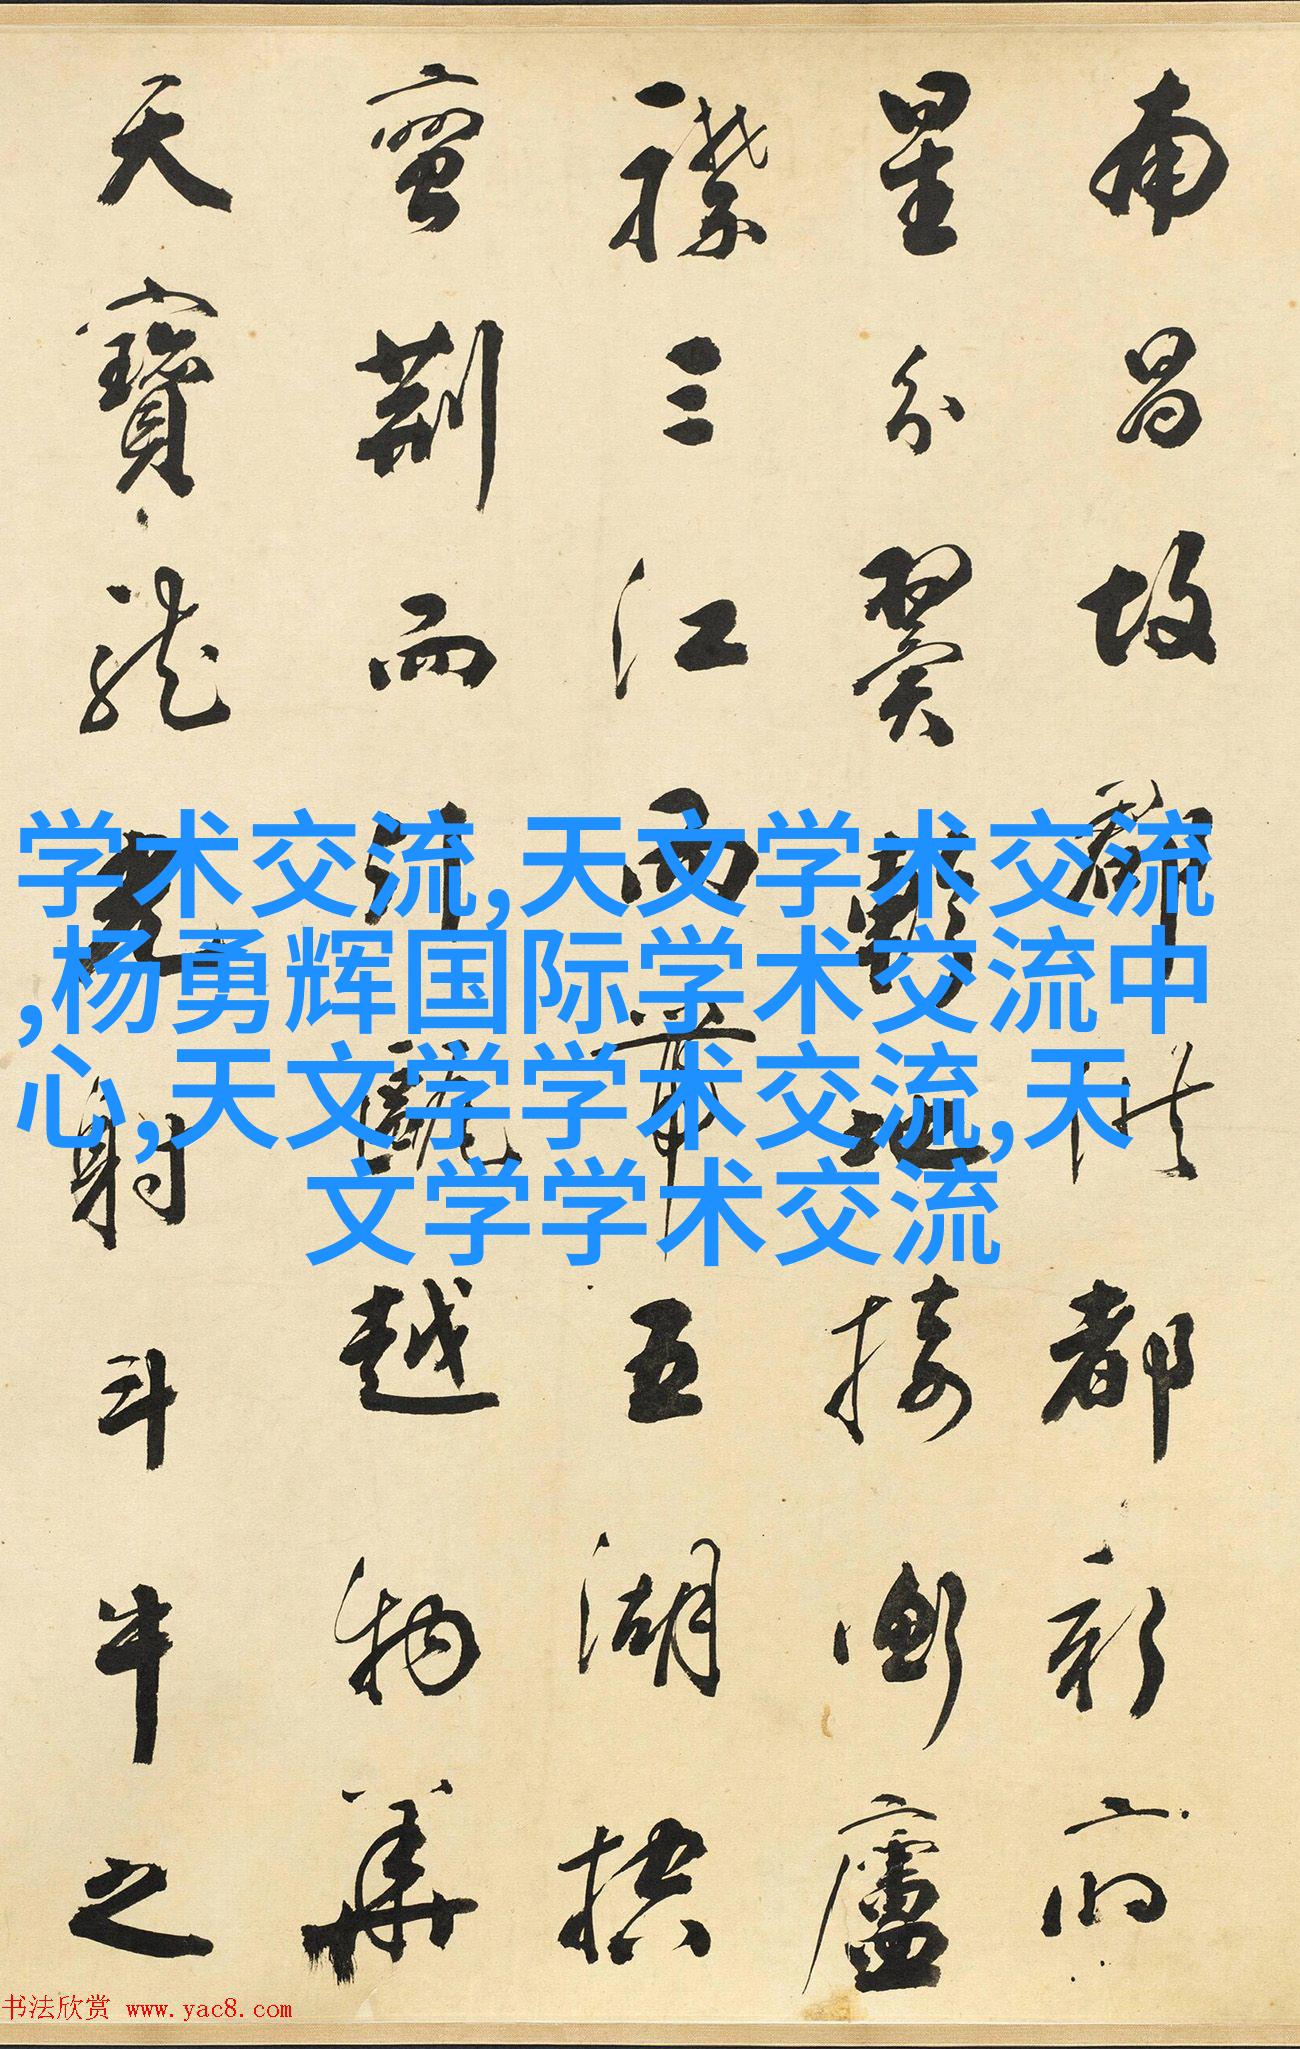 南昌故郡洪都新府
星分翼軫地接衡廬
襟三江而帶五湖控
蠻荊而引甌越物華
天寶龍光射斗牛之
学术交流,天文学术交流
,杨勇辉国际学术交流中
心,天文学学术交流,天
文学学术交流
书法欣赏 www.yac8.com